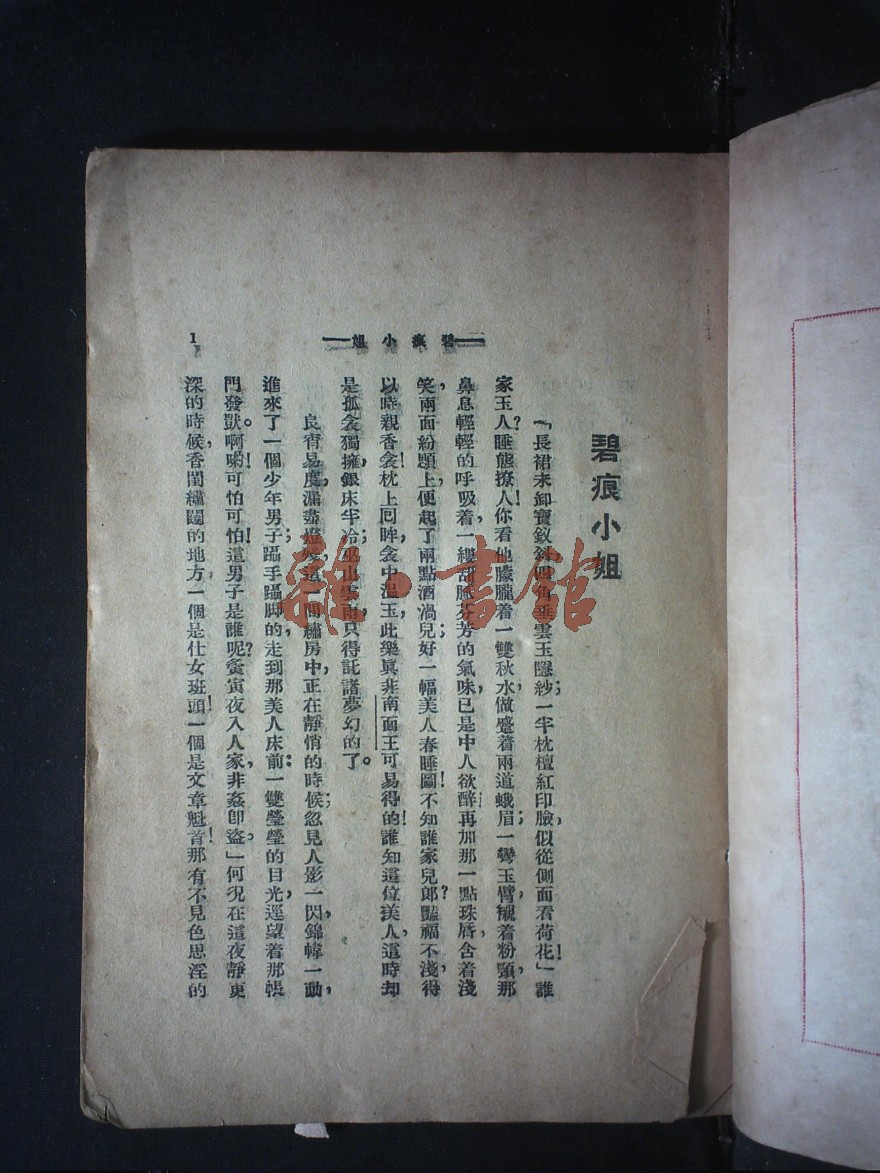 碧痕小姐
1
碧痕小姐
「長裙未卸寶釵斜四角垂雲玉隱紗;一半枕檀紅印臉,似從側面看荷花!」誰
家玉人?睡態撩人!你看他朦朧着一雙秋水,倣蹙着兩道蛾眉;一彎玉臂,襯着粉頸,那
鼻息輕輕的呼吸着,一縷甜膩芬芳的氣味,已是中人欲醉;再加那一點珠唇,含着淺
笑,兩面紛頤上,便起了兩點酒渦兒;好一幅美人春睡圖!不知誰家兒郎?豔福不淺,得
以時親香衾!枕上回眸,衾中溫玉,此樂眞非南面王可易得的!誰知這位美人,這時却
是孤衾獨擁,銀床半冷;巫山雲雨,只得託諸夢幻的了。
良宵易度,漏盡燈殘;這一間繡房中,正在靜悄的時候;忽見人影一閃,錦幃一動,
進來了一個少年男子;躡手躡脚的,走到那美人床前:一雙瑩瑩的目光,逕望着那帳
門發獃。啊喲!可怕可怕!這男子是誰呢?夤寅夜入人家,非姦卽盜。」何況在這夜靜更
深的時候,香閨繡闥的地方,一個是仕女班頭!一個是文章魁首!那有不見色思淫的
雜·書館